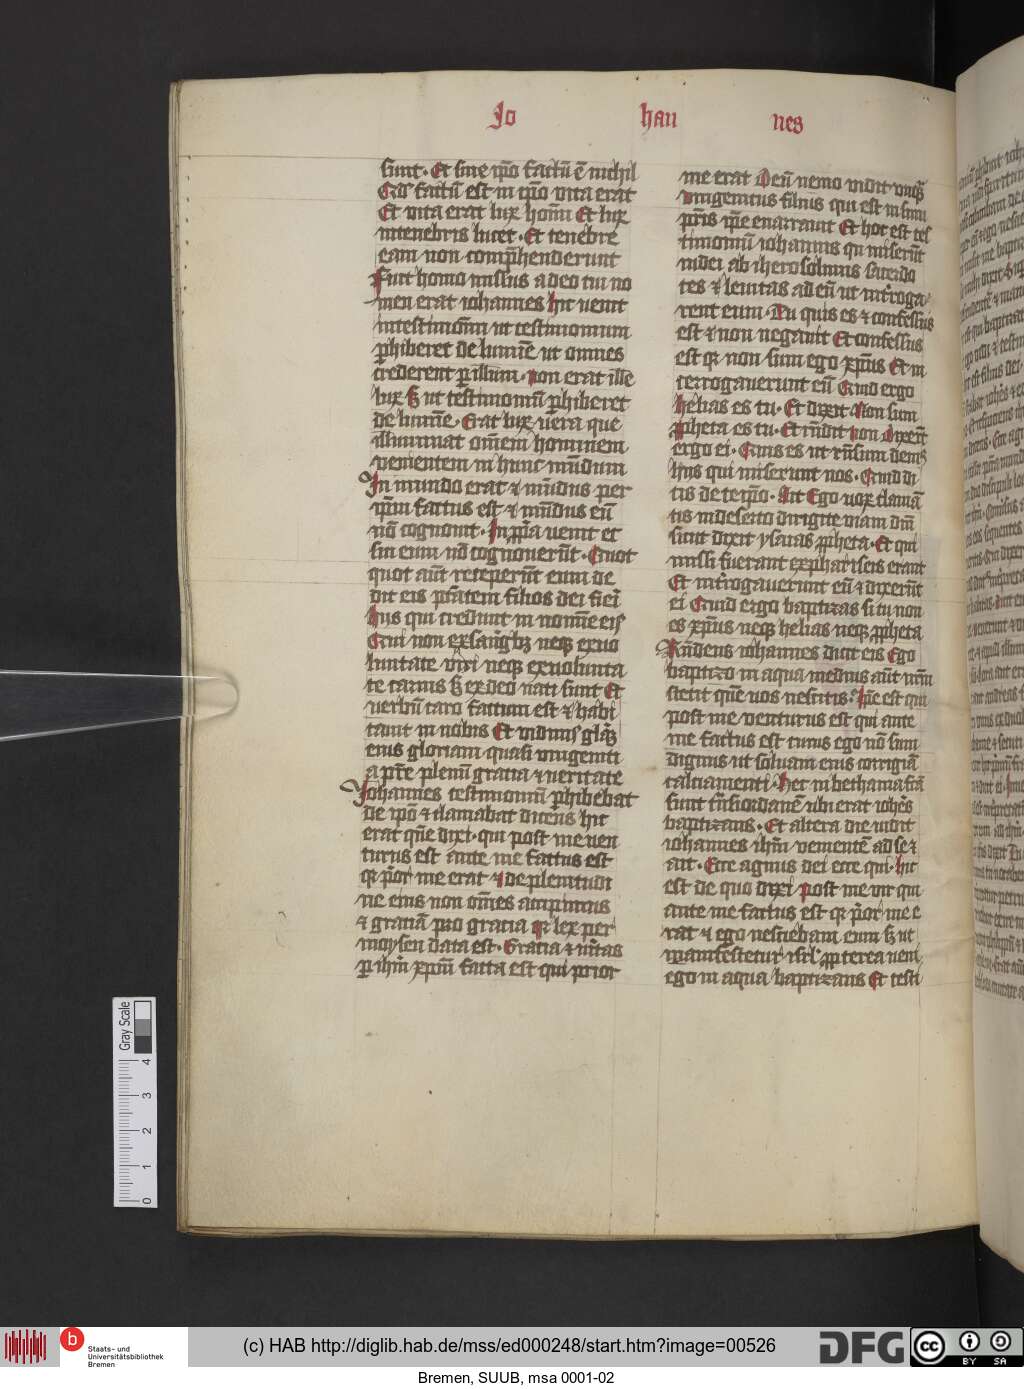 Jo han nes
sunt. Et sine ip̄o factū ē nichil
Qđ factū est in ip̄o vita erat
Et vita erat lux hom̄ Et lux
intenebris lucet. Et tenebre
eam non comp̄henderunt
Fuit homo missus a deo cui no
men erat iohannes hic venit
intestimoīm ut testimonium
ꝑhiberet de lumīe ut omnes
crederent ꝑ illum. non erat ille
lux sꝫ ut testimoniū ꝑhiberet
de lumīe. Erat lux vera que
illuminat om̄em hominem
venientem in hunc mūdum
In mundo erat ⁊ mūdus per
ip̄m factus est ⁊ mūdus eū
nō cognouit. In ꝓp̄a venit et
sui eum nō cognouerūt. Quot
quot aūt receperūt eum de
dit eis ptātem filios dei fieī
hiis qui credunt in nomīe eiꝰ
Qui non ex sanḡbꝫ neqꝫ exuo
luntate viri neqꝫ exuolunta
te carnis sꝫ ex deo nati sunt Et
verbū caro factum est ⁊ habi
tauit in nobis Et vidimꝰ
eius gloriam quasi vnigeniti
a pr̄e plenū gratia ⁊ veritate
Johannes testimoniū ꝑhibebat
de ip̄o ⁊ clamabat dicens hic
erat quē dixi. qui post me ven
turus est ante me factus est
qꝛ p̄or me erat ⁊ de plenitudi
ne eius non om̄es accepimus
⁊ gratiā pro gratia qꝛ lex per
moysen data est. Gratia ⁊ vītas
ꝑ ih̄m xp̄m facta est qui prior
me erat Deū nemo vidit vnq̄
vnigenitus filius qui est in sinu
pr̄is ip̄e enarrauit Et hoc est tes
timoniū iohannis qn̄ miserūt
iudei ab iherosolimis sacerdo
tes ⁊ leuitas ad eū ut int̄roga
rent eum. Tu quis es ⁊ confessus
est ⁊ non negauit Et confessus
est qꝛ non sum ego xp̄us Et in
terrogauerunt eū Quid ergo
helias es tu. Et dixit Non sum
ꝓpheta es tu. Et rn̄dit non Dixerūt
ergo ei. Quis es ut rn̄sum demꝰ
hiis qui miserunt nos. Quid di
cis de teip̄o. Ait Ego vox clamā
tis in deserto dirigite viam dn̄i
sicut dixit ysayas ꝓpheta. Et qui
missi fuerant ex phariseis erant
Et int̄rogauerunt eū ⁊ dixerūt
ei Quid ergo baptizas si tu non
es xp̄us neqꝫ helias neqꝫ ꝓpheta
Rn̄dens iohannes dicit eis Ego
baptizo in aqua medius aūt vr̄m
stetit quē vos nescitis. Ip̄e est qui
post me venturus est qui ante
me factus est cuius ego nō sum
dignus ut soluam eius corrigiā
calciamenti. Hec in bethania fcā
sunt tn̄s iordanē ubi erat ioh̄es
baptizans. Et altera die vidit
iohannes ih̄m venientē ad se ⁊
ait. Ecce agnus dei ecce qui. Hic
est de quo dixi post me vir qui
ante me factus est qꝛ p̄or me e
rat ⁊ ego nesciebam eum sꝫ ut
manifestetur isrl̄ ꝓpterea veni
ego in aqua baptizans Et testi
Gray Scale
0 1 2 3 4
b Staats- und
Universitätsbibliothek
Bremen
(c) HAB http://diglib.hab.de/mss/ed000248/start.htm?image=00526
DFG
cc BY SA
Bremen, SUUB, msa 0001-02